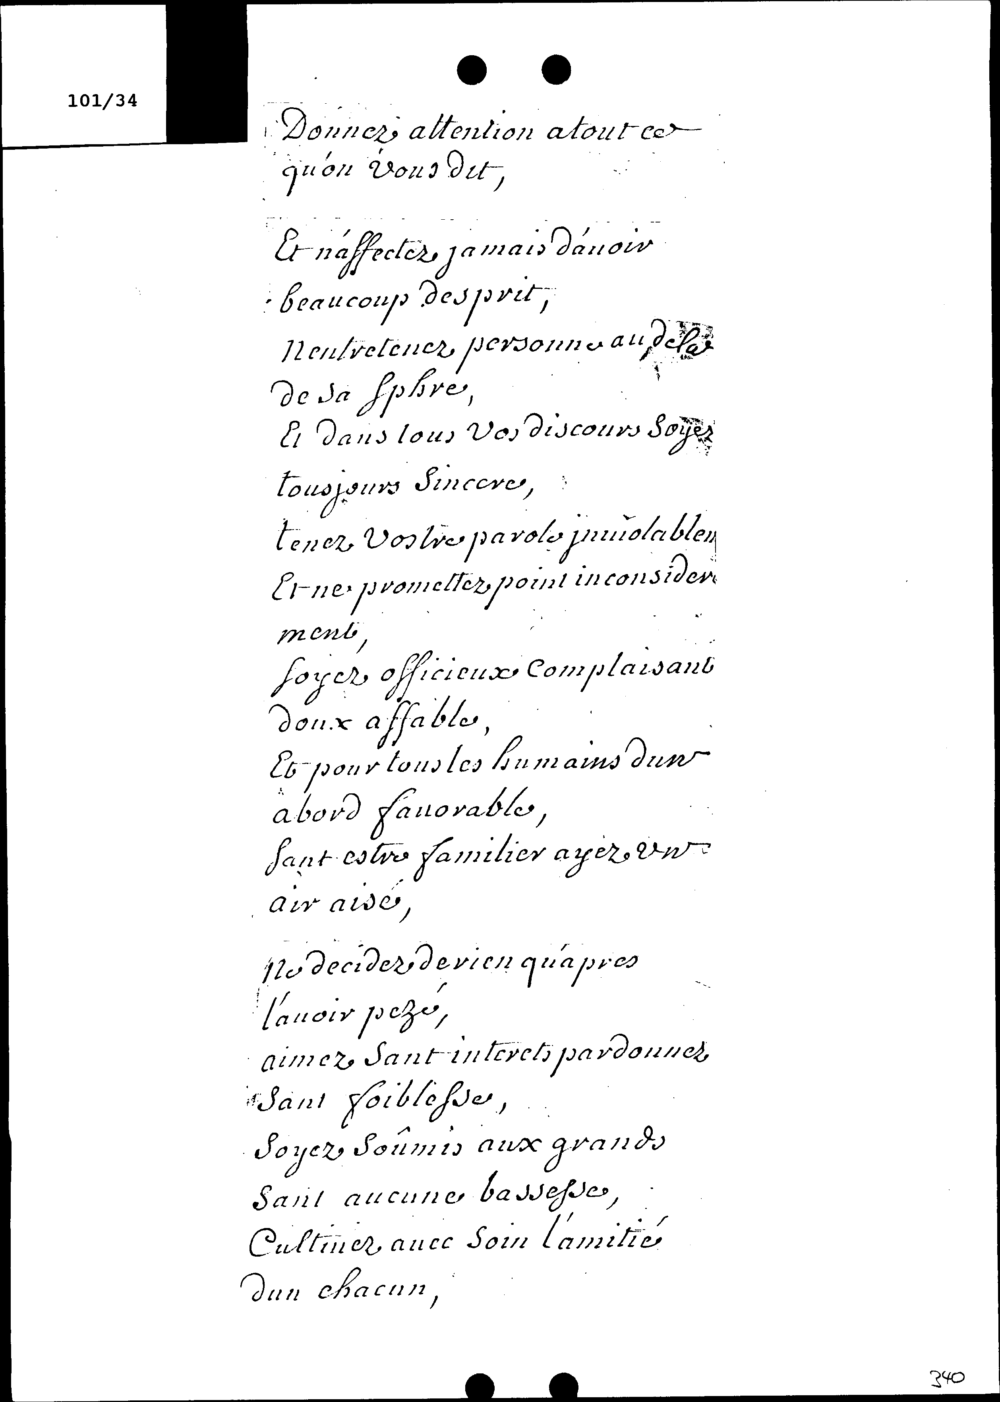 101/34
Donnez attention a tout ce
qu'on Vous Dit,
Et n'affectez jamais D'auoir
beaucoup Desprit,
N'entretenez personne au dela
de Sa Sphre,
Et Dans tous Vos Discours Soyez
tousjours Sincere,
tenez Vostre parole jnuiolablem
Et ne promettez point inconsider
ment,
Soyez officieux Complaisant
Doux affable,
Et pour tous les humains Dun
abord fauorable,
Sant estre familier ayez un
air aisé,
Ne Decidez De rien qu'apres
l'auoir pezé,
aimez Sant interets pardonnez
Sant foiblesse,
Soyez Soûmis aux grands
Sant aucune bassesse,
Cultiuez auec Soin l'amitié
Dun chacun,
340